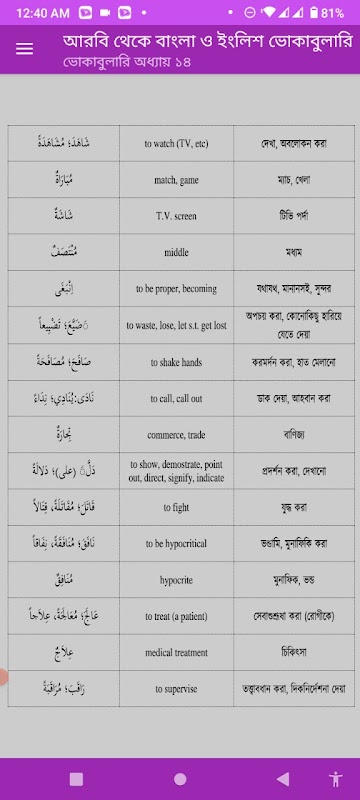 12:40 AM
81%
আরবি থেকে বাংলা ও ইংলিশ ভোকাবুলারি
ভোকাবুলারি অধ্যায় ১৪
شَاهَدَ؛ مُشَاهَدَةً to watch (TV, etc) দেখা, অবলোকন করা
مُبَارَاةٌ match, game ম্যাচ, খেলা
شَاشَةٌ T.V. screen টিভি পর্দা
مُنْتَصَفٌ middle মধ্যম
اِنْبَغَى to be proper, becoming যথাযথ, মানানসই, সুন্দর
ضَيَّعَ؛ تَضْيِيعاً to waste, lose, let s.t. get lost অপচয় করা, কোনোকিছু হারিয়ে
যেতে দেয়া
صَافَحَ؛ مُصَافَحَةً to shake hands করমর্দন করা, হাত মেলানো
نَادَى:يُنَادِي؛ نِدَاءً to call, call out ডাক দেয়া, আহবান করা
تِجَارَةٌ commerce, trade বাণিজ্য
دَلَّ (على)؛ دَلَالَةً to show, demostrate, point
out, direct, signify, indicate প্রদর্শন করা, দেখানো
قَاتَلَ؛ مُقَاتَلَةً، قِتَالاً to fight যুদ্ধ করা
نَافَقَ؛ مُنَافَقَةً، نِفَاقاً to be hypocritical ভন্ডামি, মুনাফিকি করা
مُنَافِقٌ hypocrite মুনাফিক, ভন্ড
عَالَجَ؛ مُعَالَجَةً، عِلَاجاً to treat (a patient) সেবাশুশ্রূষা করা (রোগীকে)
عِلَاجٌ medical treatment চিকিৎসা
رَاقَبَ؛ مُرَاقَبَةً to supervise তত্ত্বাবধান করা, দিকনির্দেশনা দেয়া